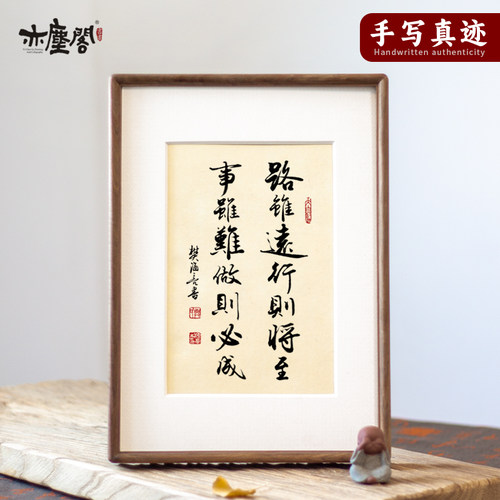 亦塵閣
手写真迹
Handwritten authenticity
路雖遠行則將至
事雖難做則必成